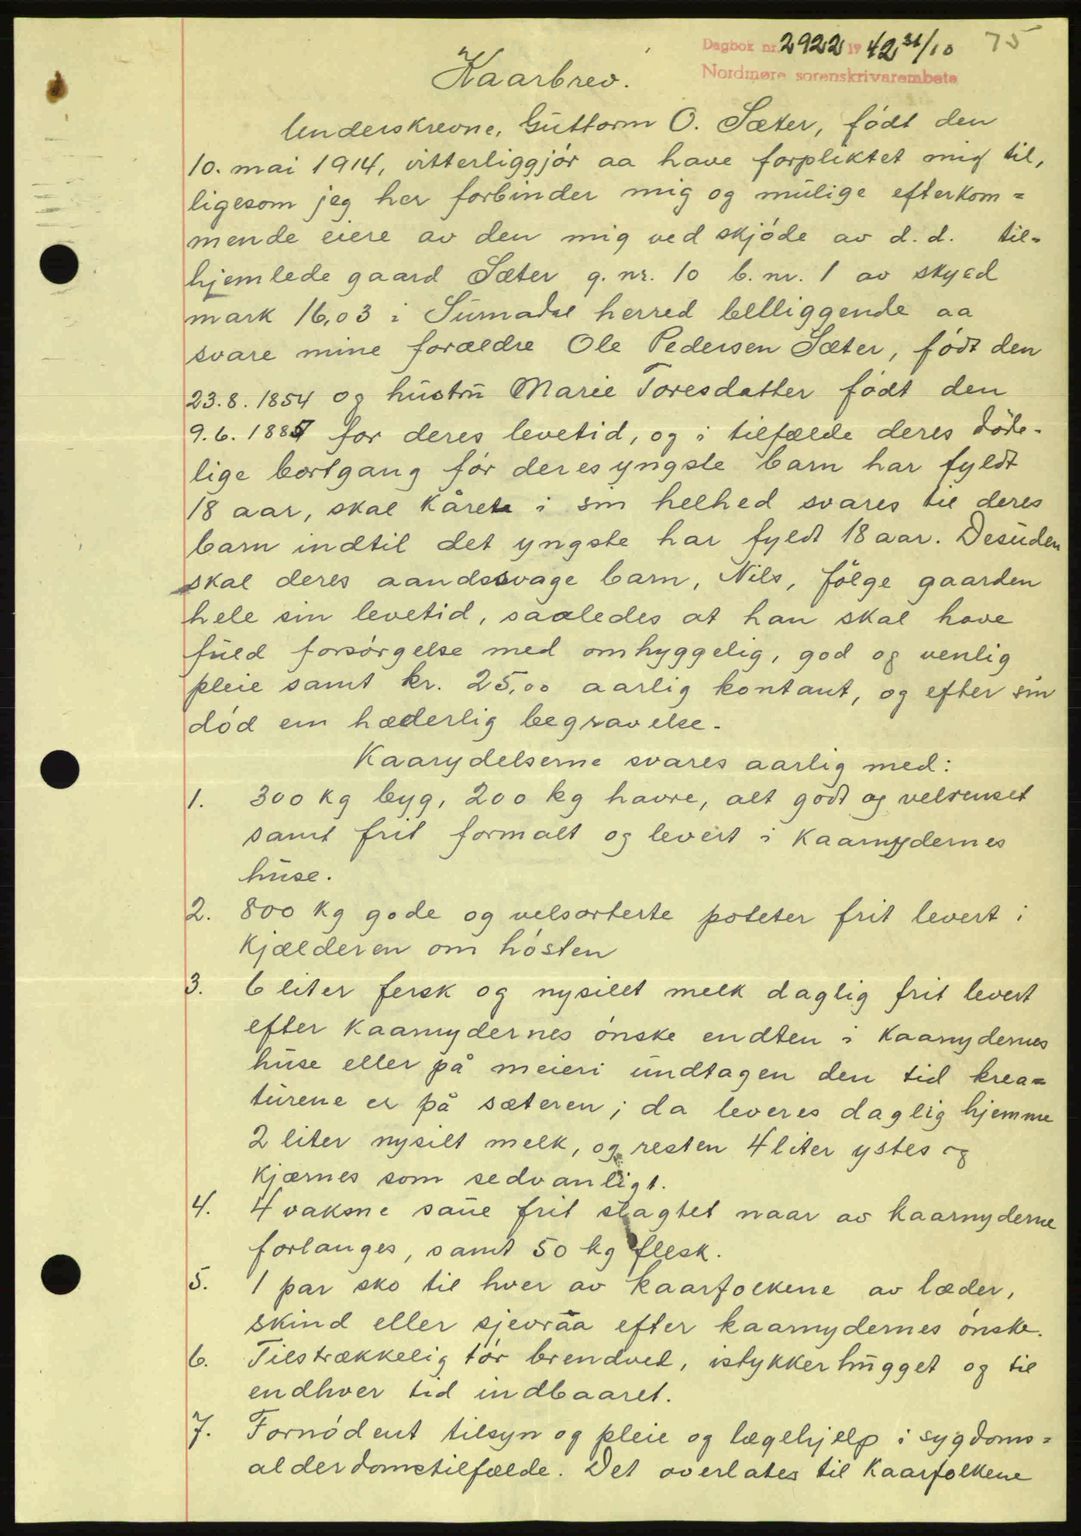 Dagbok nr. 2922 1942 31/10 75
Nordmøre sorenskrivarembete
Kaarbrev.
Underskrevne, Guttorm O. Sæter, født den
10. mai 1914, vitterliggjör aa have forpliktet mig til,
ligesom jeg her forbinder mig og mulige efterkom=
mende eiere av den mig ved skjöde av d.d. til=
hjemlede gaard Sæter g. nr. 10 b. nr. 1 av skyld
mark 16,03 i Surnadal herred belliggende aa
svare mine forældre Ole Pedersen Sæter, födt den
23.8.1854 og hustru Marie Toresdatter födt den
9.6.1885 for deres levetid, og i tilfælde deres döde=
lige bortgang för deres yngste barn har fyldt
18 aar, skal kåret i sin helhed svares til deres
barn indtil det yngste har fyldt 18 aar. Desuden
skal deres aandssvage barn, Nils, fölge gaarden
hele sin levetid, saaledes at han skal have
fuld forsörgelse med omhyggelig, god og venlig
pleie samt kr. 25,00 aarlig kontant, og efter sin
död en hæderlig begravelse.
Kaarydelserne svares aarlig med:
1. 300 kg byg, 200 kg havre, alt godt og velrenset
samt frit formalt og levert i kaarnydernes
huse.
2. 800 kg gode og velsorterte poteter frit levert i
kjælderen om hösten
3. 6 liter fersk og nysilet melk daglig frit levert
efter kaarnydernes önske endten i kaarnydernes
huse eller på meieri undtagen den tid krea=
turene er på sæteren; da leveres daglig hjemme
2 liter nysilt melk, og resten 4 liter ystes og
kjærnes som sedvanligt.
4. 4 voksne saue frit slagtet naar av kaarnyderne
forlanges, samt 50 kg flesk.
5. 1 par sko til hver av kaarfolkene av læder,
skind eller sjevraa efter kaarnydernes önske.
6. Tilstrækkelig tör brendved, istykkerhugget og til
endhver tid indbaaret.
7. Fornödent tilsyn og pleie og lægehjelp i sygdoms=
alderdomstilfælde. Det overlates til kaarfolkene